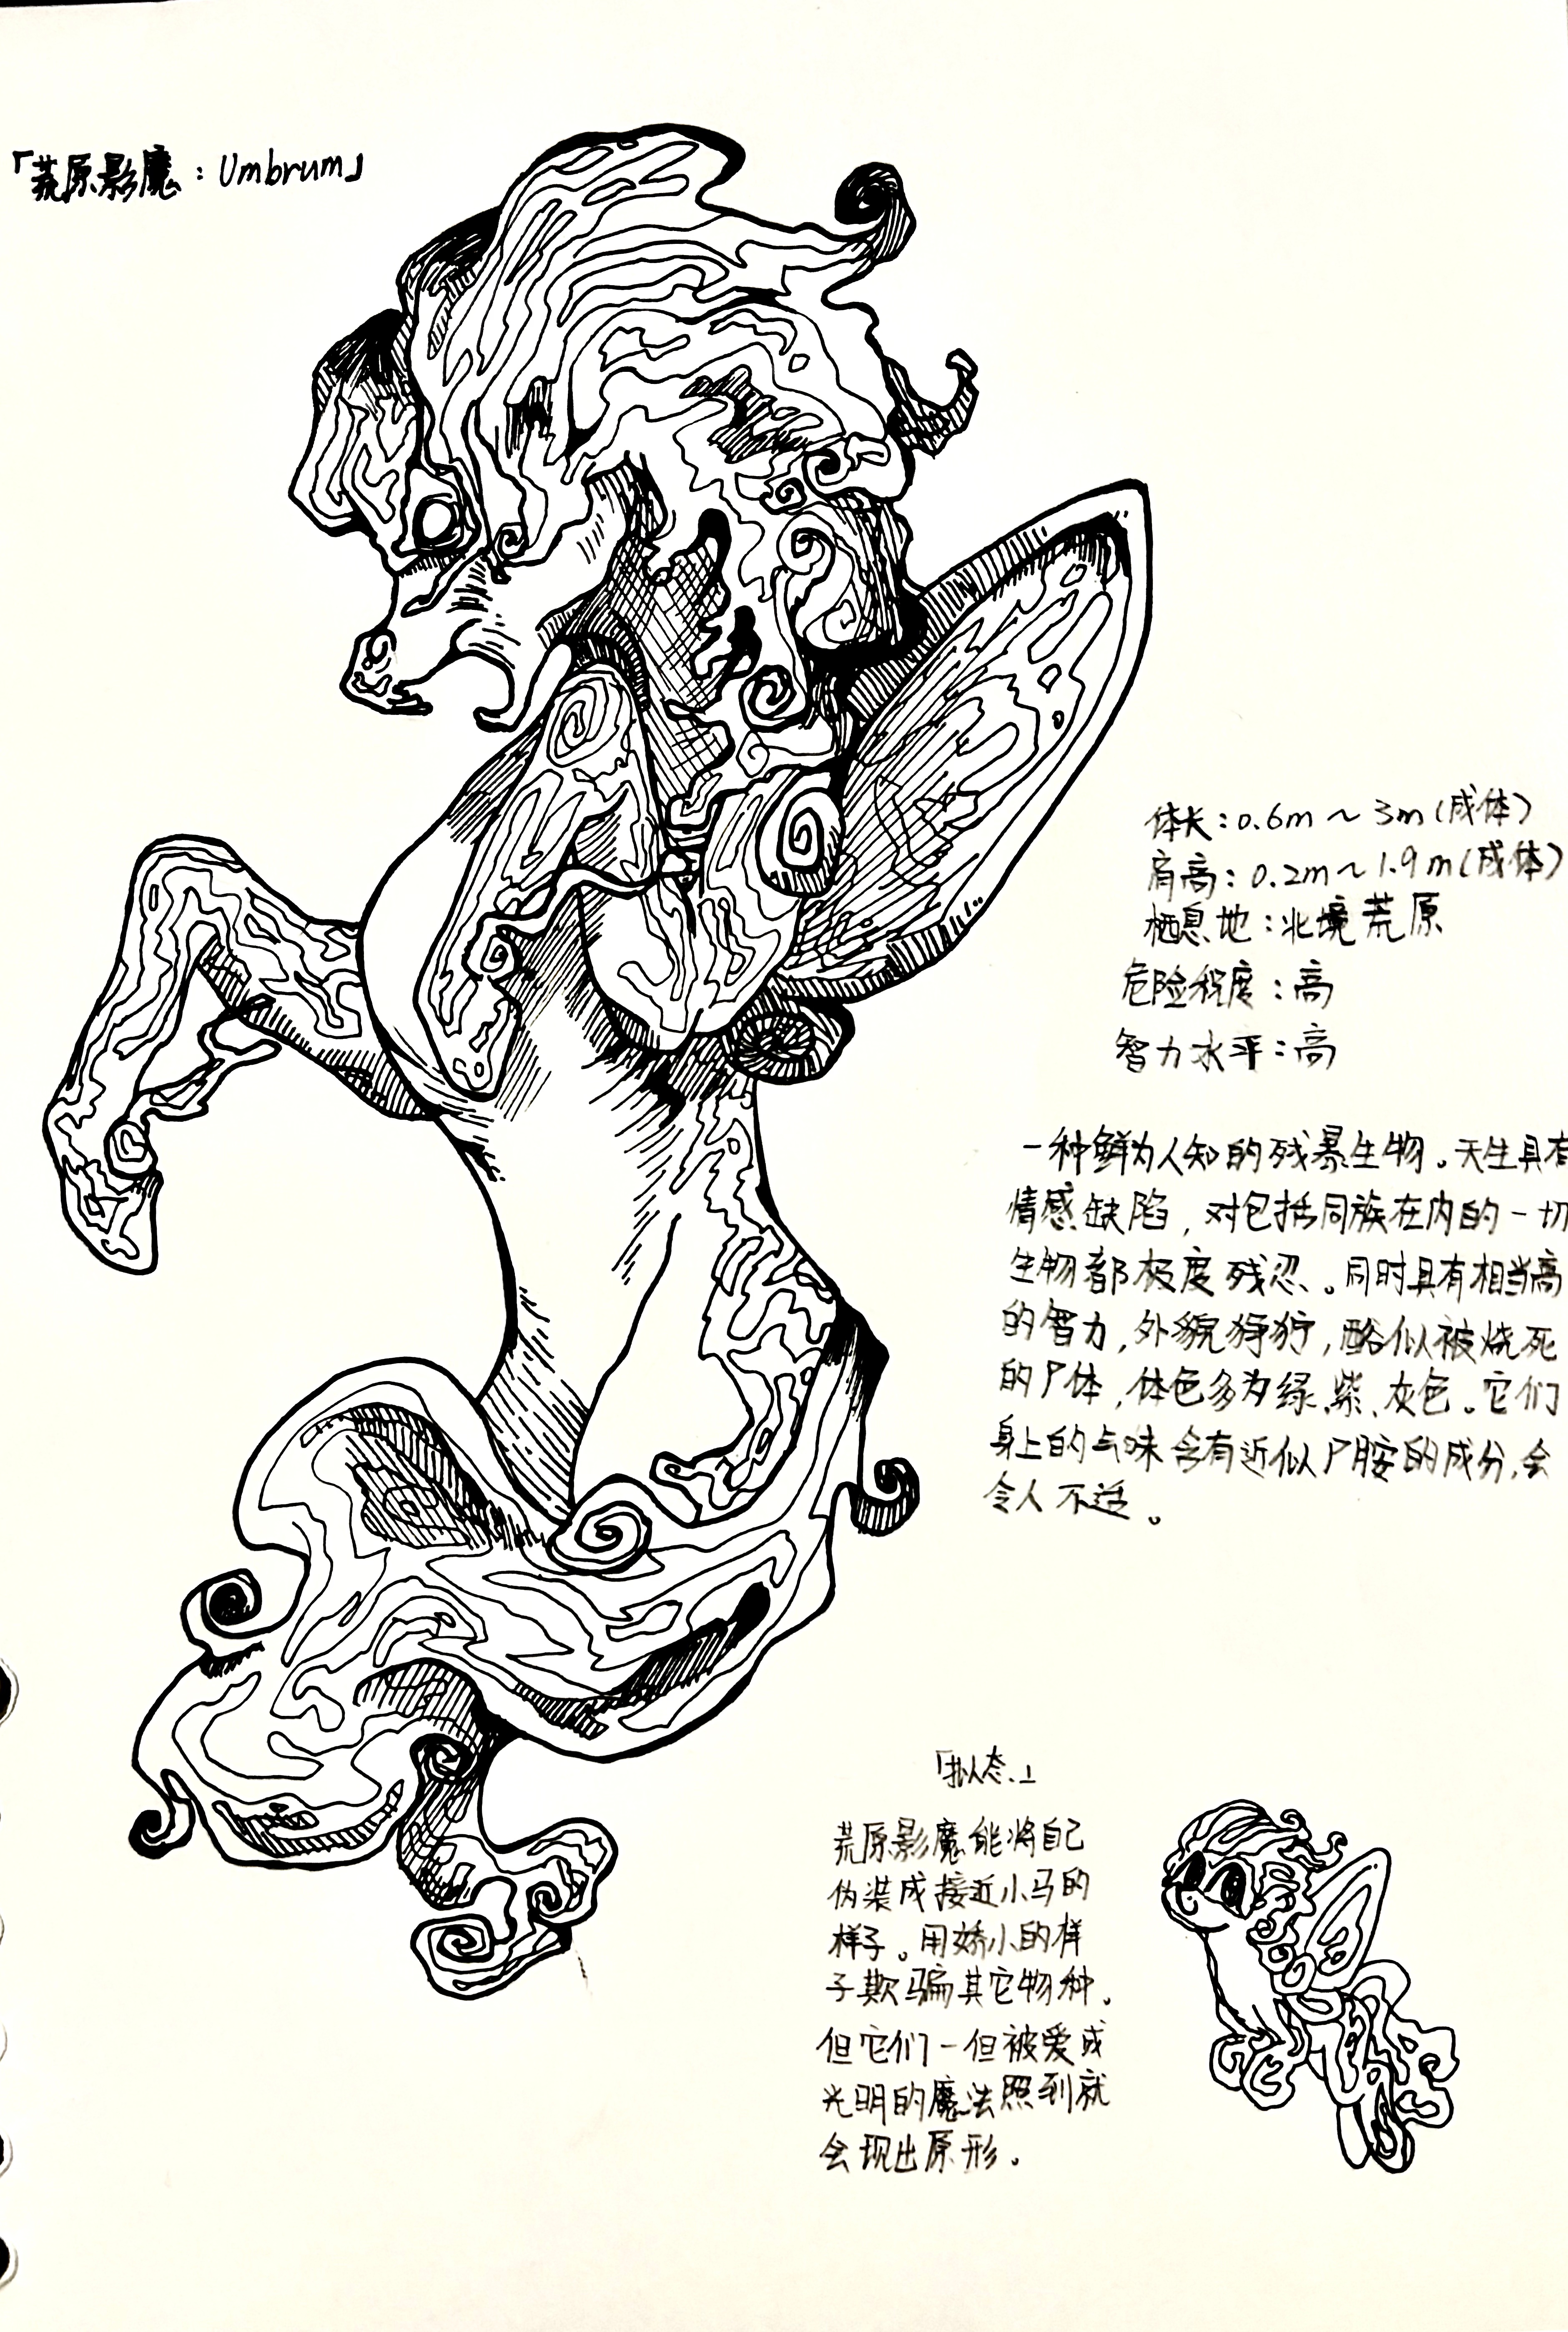 「荒原影魔：Umbrum」
体长：0.6m～3m(成体)
肩高：0.2m～1.9m(成体)
栖息地：北境荒原
危险程度：高
智力水平：高
一种鲜为人知的残暴生物。天生具有
情感缺陷，对包括同族在内的一切
生物都极度残忍。同时具有相当高
的智力，外貌狰狞，酷似被烧死
的尸体，体色多为绿、紫、灰色。它们
身上的气味含有近似尸胺的成分，会
令人不适。
「拟态」
荒原影魔能将自己
伪装成接近小马的
样子。用娇小的样
子欺骗其它物种。
但它们一但被爱或
光明的魔法照到就
会现出原形。